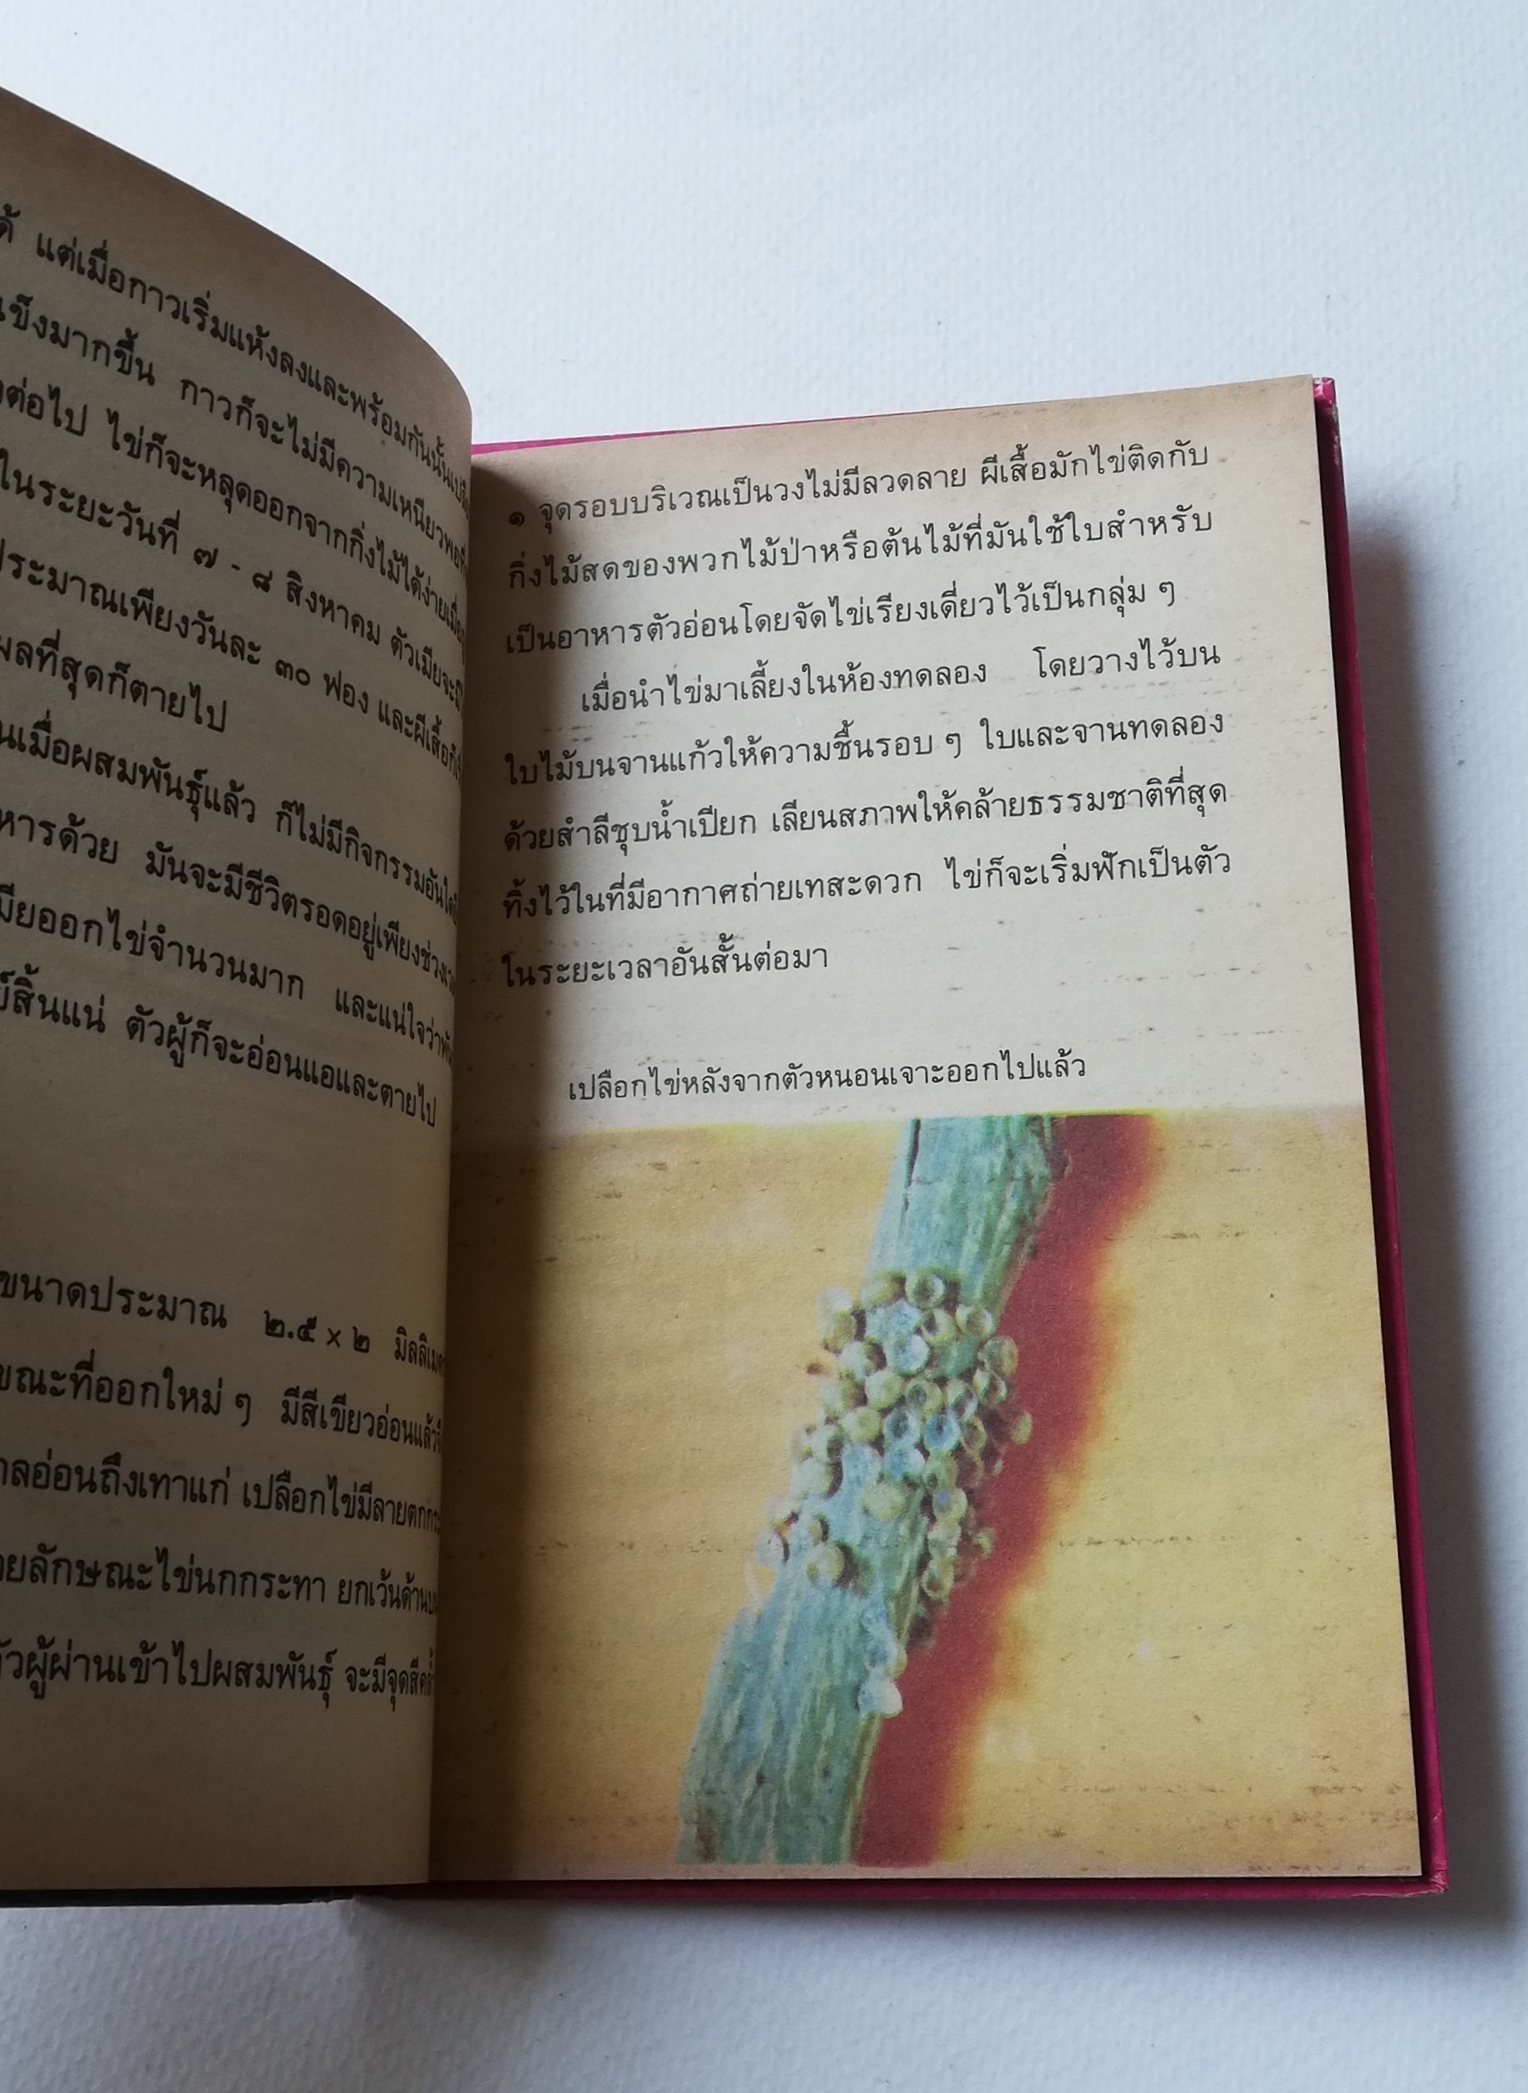 แต่เมื่อกาวเริ่มแห้งลงและพร้อมกันนั้น
แข็งมากขึ้น กาวก็จะไม่มีความเหนียว
ต่อไป ไข่ก็จะหลุดออกจากกิ่งไม้ได้ง่าย
ในระยะวันที่ ๗ - ๘ สิงหาคม ตัวเมียจะ
ประมาณเพียงวันละ ๓๐ ฟอง และผีเสื้อ
ที่สุดก็ตายไป
เมื่อผสมพันธุ์แล้ว ก็ไม่มีกิจกรรมอันใด
หารด้วย มันจะมีชีวิตรอดอยู่เพียงช่วง
มียออกไข่จำนวนมาก และแน่ใจว่า
สิ้นแน่ ตัวผู้ก็จะอ่อนแอและตายไป
ขนาดประมาณ ๒.๕ x ๒ มิลลิเมตร
ขณะที่ออกใหม่ ๆ มีสีเขียวอ่อนแล้ว
อ่อนถึงเทาแก่ เปลือกไข่มีลายตกกระ
ลักษณะไข่นกกระทา ยกเว้นด้านบน
ตัวผู้ผ่านเข้าไปผสมพันธุ์ จะมีจุดสี
๑ จุดรอบบริเวณเป็นวงไม่มีลวดลาย ผีเสื้อมักไข่ติดกับ
กิ่งไม้สดของพวกไม้ป่าหรือต้นไม้ที่มันใช้ใบสำหรับ
เป็นอาหารตัวอ่อนโดยจัดไข่เรียงเดี่ยวไว้เป็นกลุ่ม ๆ
เมื่อนำไข่มาเลี้ยงในห้องทดลอง โดยวางไว้บน
ใบไม้บนจานแก้วให้ความชื้นรอบ ๆ ใบและจานทดลอง
ด้วยสำลีชุบน้ำเปียก เลียนสภาพให้คล้ายธรรมชาติที่สุด
ทิ้งไว้ในที่มีอากาศถ่ายเทสะดวก ไข่ก็จะเริ่มฟักเป็นตัว
ในระยะเวลาอันสั้นต่อมา
เปลือกไข่หลังจากตัวหนอนเจาะออกไปแล้ว